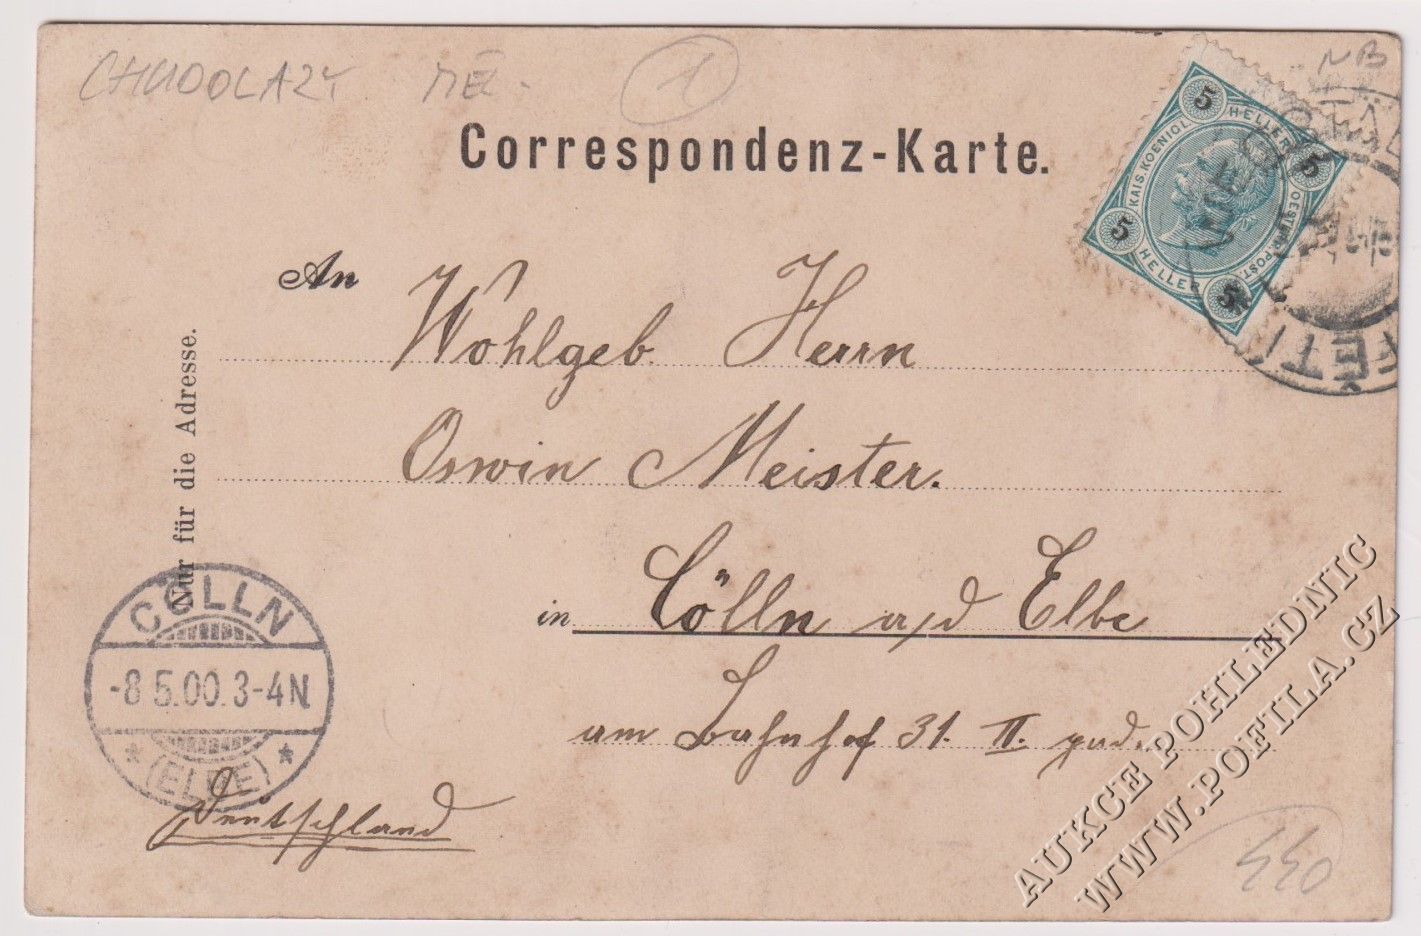 CHUDOLAZY MĚL- 1 NB
Correspondenz-Karte.
5 HELLER 5
KAIS. KOENIGL. OESTERR. POST.
5 HELLER 5
An Wohlgeb Herrn
Oswin Meister.
in Cölln a/d Elbe
am Bahnhof 31. II.
Deutschland
Nur für die Adresse.
CÖLLN
-8 5.00.3-4N
* (ELBE) *
AUKCE POHLEDNIC
WWW.POFILA.CZ